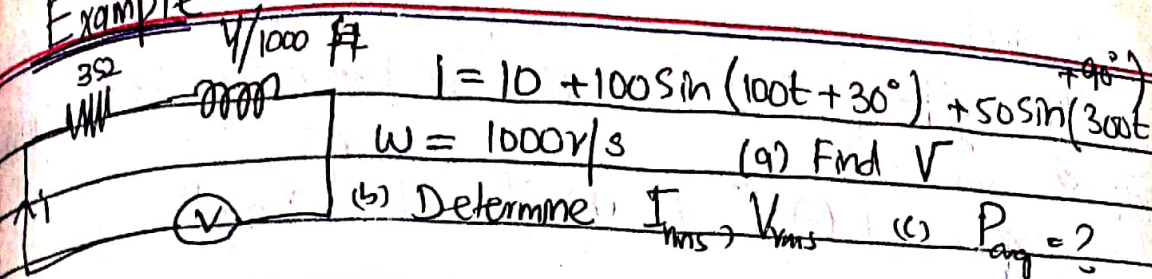 Example
3Ω
4/1000 H
i = 10 + 100 Sin (100t + 30°) + 50 Sin (300t + 90°)
ω = 1000 r/s (a) Find V
(b) Determine I rms, V rms (c) P avg = ?
i
V